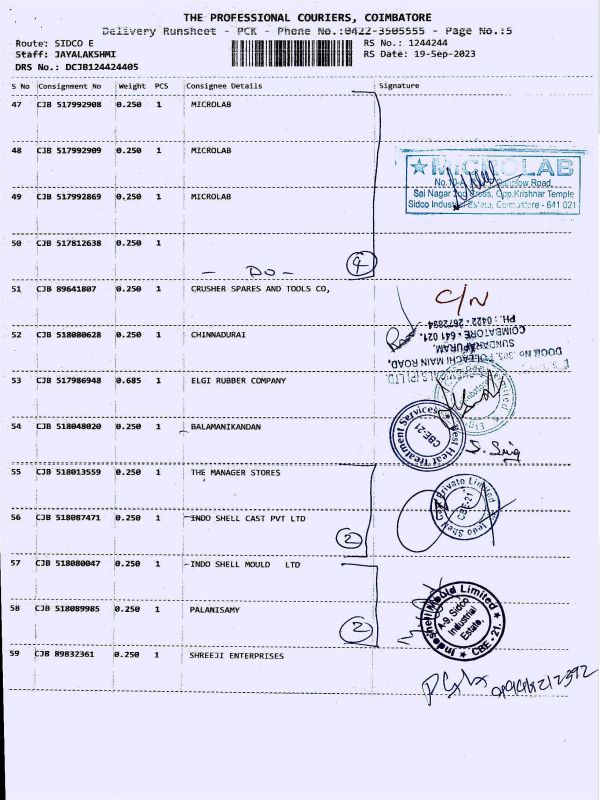 THE PROFESSIONAL COURIERS, COIMBATORE
Delivery Runsheet - PCK - Phone No.:0422-3505555 - Page No.:5
Route: SIDCO E
RS No.: 1244244
Staff: JAYALAKSHMI
RS Date: 19-Sep-2023
DRS No.: DCJB124424405
S No Consignment No Weight PCS Consignee Details Signature
47 CJB 517992908 0.250 1 MICROLAB
48 CJB 517992909 0.250 1 MICROLAB
MICROLAB
Road,
49 CJB 517992869 0.250 1 MICROLAB
Sai Nagar Opp.Krishnar Temple
Sidco Estate, Coimbatore - 641 021
50 CJB 517812638 0.250 1
- DO -
4
51 CJB 89641807 0.250 1 CRUSHER SPARES AND TOOLS CO,
C/N
PH. : 0422 - 2672894
COIMBATORE - 641 021.
52 CJB 518080628 0.250 1 CHINNADURAI
SUNDARAPURAM,
DOOR No. 305, POLLACHI MAIN ROAD,
53 CJB 517986948 0.685 1 ELGI RUBBER COMPANY
54 CJB 518048020 0.250 1 BALAMANIKANDAN
West Heat Treatment Services
CBE-21
55 CJB 518013559 0.250 1 THE MANAGER STORES
56 CJB 518087471 0.250 1 INDO SHELL CAST PVT LTD
2
Indo Shell Private Limited
CBE-21
57 CJB 518080047 0.250 1 INDO SHELL MOULD LTD
58 CJB 518089985 0.250 1 PALANISAMY
2
Indoshell Mould Limited
A-9, Sidco
Industrial
Estate,
CBE - 21.
59 CJB 89832361 0.250 1 SHREEJI ENTERPRISES